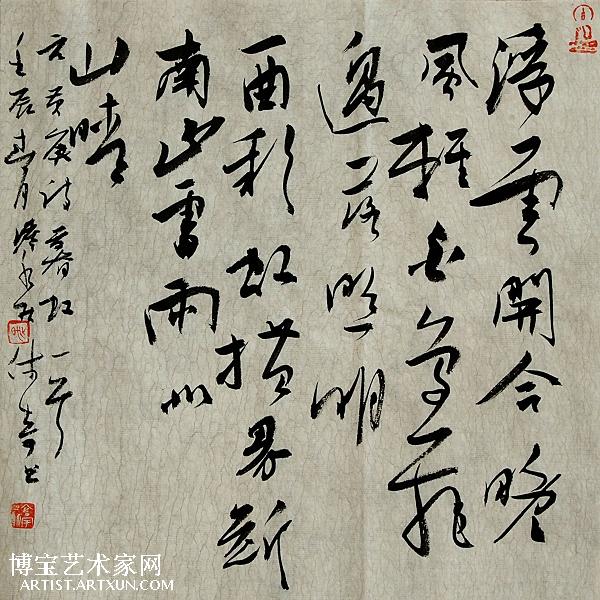 浮雲開合晚
風輕白鳥飛
邊落照明
一曲彩虹橫界斷
南山雷雨北
山晴
元黄庚诗暮虹一首
壬辰春月
博宝艺术家网
ARTIST.ARTXUN.COM